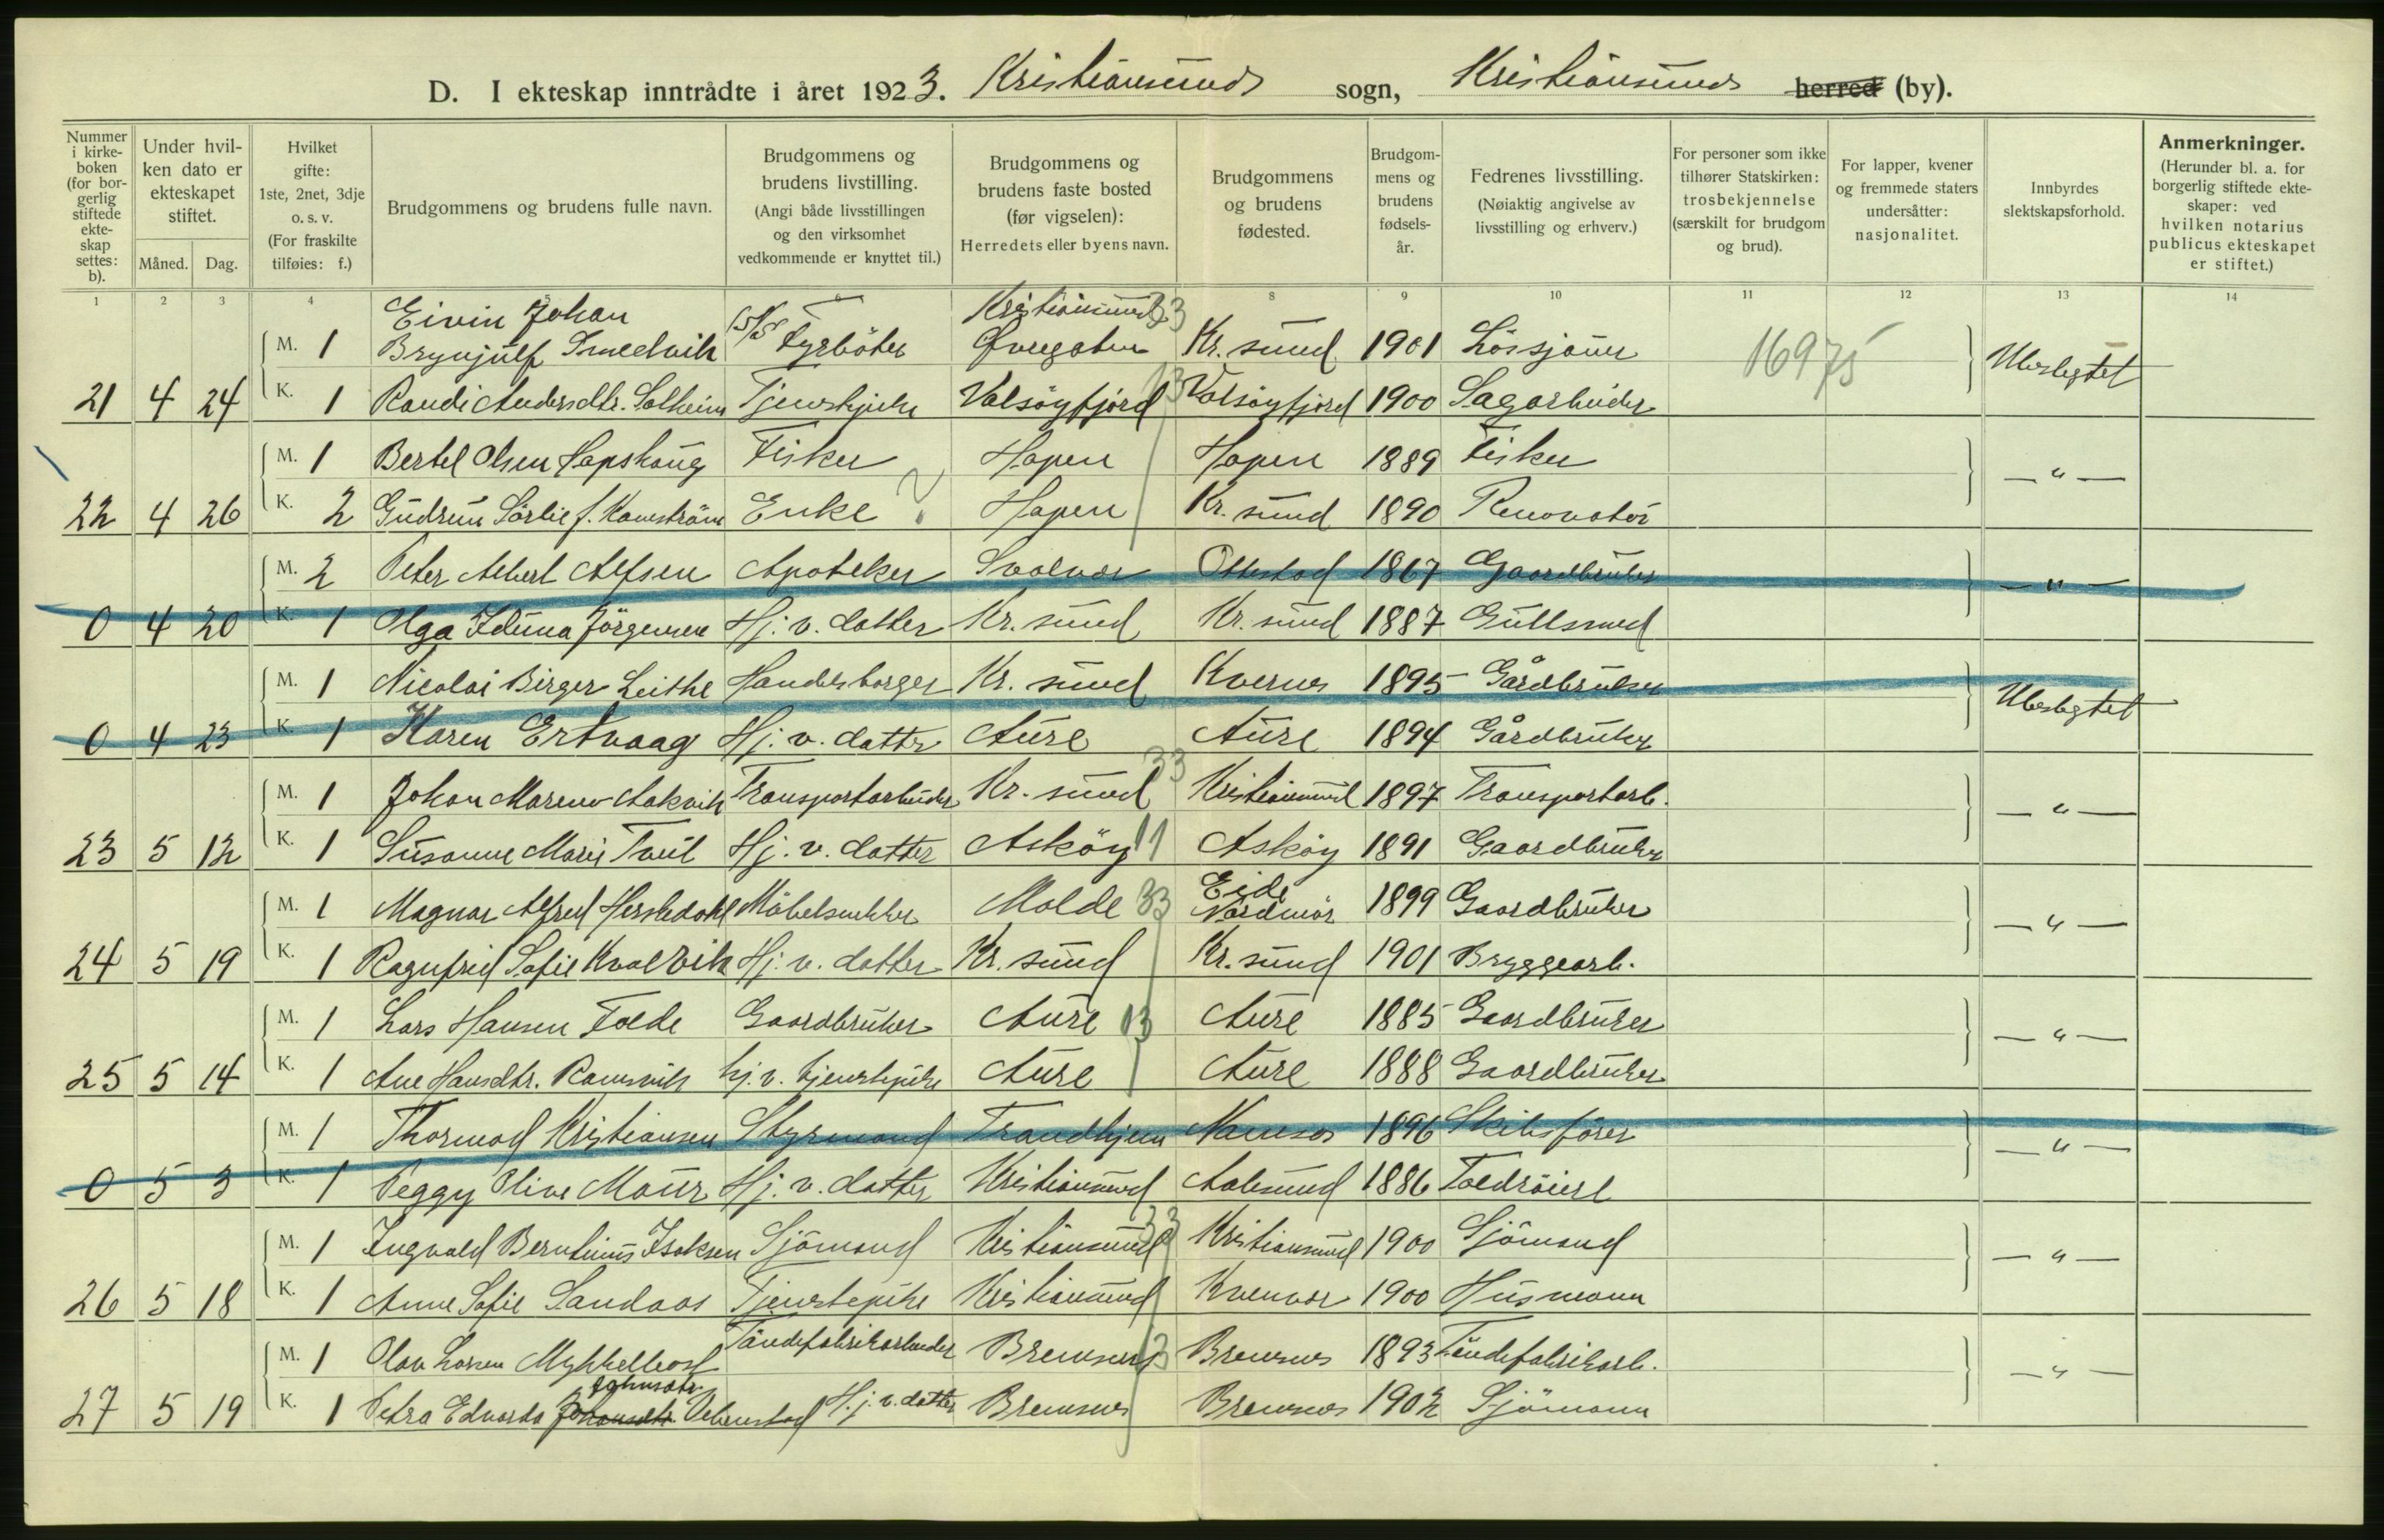 D. I ekteskap inntrådte i året 1923. Kristiansund sogn, Kristiansund herred (by).
Nummer i kirkeboken (for borgerlig stiftede ekteskap settes: b).
Under hvilken dato er ekteskapet stiftet.
Måned. Dag.
Hvilket gifte: 1ste, 2net, 3dje o. s. v. (For fraskilte tilføies: f.)
Brudgommens og brudens fulle navn.
Brudgommens og brudens livstilling. (Angi både livsstillingen og den virksomhet vedkommende er knyttet til.)
Brudgommens og brudens faste bosted (før vigselen): Herredets eller byens navn.
Brudgommens og brudens fødested.
Brudgommens og brudens fødselsår.
Fedrenes livsstilling. (Nøiaktig angivelse av livsstilling og erhverv.)
For personer som ikke tilhører Statskirken: trosbekjennelse (særskilt for brudgom og brud).
For lapper, kvener og fremmede staters undersåtter: nasjonalitet.
Innbyrdes slektskapsforhold.
Anmerkninger. (Herunder bl. a. for borgerlig stiftede ekteskaper: ved hvilken notarius publicus ekteskapet er stiftet.)
1 2 3 4 5 6 8 9 10 11 12 13 14
Eivin Johan Kristiansund 33
M. 1 Brynjulf Smedvik S/S Fyrbøter Kr. sund 1901 Løssjauer 16975 Ubeslegtet
21 4 24 K. 1 Randi Andersdtr. Solheim Tjenestepike Valsøyfjord 13 Valsøyfjord 1900 Sagarbeider
M. 1 Bertel Olsen Hapshaug Fisker Hopen Hopen 1889 Fisker — " —
22 4 26 K. 2 Gudrun Sørlie f. Enke ? Hopen Kr. sund 1890 Renovatør
M. 2 Peter Albert Alfsen Apoteker Svolvær Ottestad 1867 Gaardbruker — " —
0 4 20 K. 1 Olga Iduna Jörgensen Hj. v. datter Kr. sund Kr. sund 1887 Gullsmed
M. 1 Nicolai Birger Leithe Handelsborger Kr. sund Kvernes 1895 Gårdbruker Ubeslegtet
0 4 23 K. 1 Karen Ertvaag Hj. v. dattr Aure Aure 1894 Gårdbruker
M. 1 Johan Marenus Aakvik Transportarbeider Kr. sund 33 Kristiansund 1897 Transportarb. — " —
23 5 12 K. 1 Susanne Marie Tveit Hj. v. datter Askøy 11 Askøy 1891 Gaardbruker
M. 1 Magnar Alfred Hersledahl Møbelsnekker Molde 33 Eide Nordmør 1899 Gaardbruker — " —
24 5 19 K. 1 Ragnfrid Sofie Kvalvik Hj. v. datter Kr. sund Kr. sund 1901 Bryggearb.
M. 1 Lars Hansen Folde Gaardbruker Aure 13 Aure 1885 Gaardbruker — " —
25 5 14 K. 1 Ane Hansdtr. Ramsvik hj. v. tjenestepike Aure Aure 1888 Gaardbruker
M. 1 Thormod Kristiansen Styrmand Trondhjem Namsos 1896 Skibsfører — " —
0 5 3 K. 1 Peggy Olive Maur Hj. v. datter Kristiansund Aalesund 1886 Toldrøiert
M. 1 Ingvald Berntinus Isaksen Sjømand Kristiansund 33 Kristiansund 1900 Sjømand — " —
26 5 18 K. 1 Anne Sofie Sandaas Tjenestepike Kristiansund Kvenvær 1900 Husmann
M. 1 Olav Larsen Myklebost Tøndefabrikarbeider Bremsnes 13 Bremsnes 1893 Tøndefabrikarb. — " —
Johnsdtr.
27 5 19 K. 1 Petra Edvarda Johansdtr. Hj. v. datter Bremsnes Bremsnes 1902 Sjømann